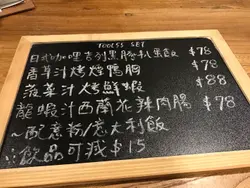 TOOLSS SET
日式咖哩吉列黑豚扒飯 $78
香草汁烤鴨胸 $78
菠菜汁烤鮮蝦 $88
龍蝦汁西蘭花辣肉腸 $78
~配意粉/意大利飯
飲品可減$15